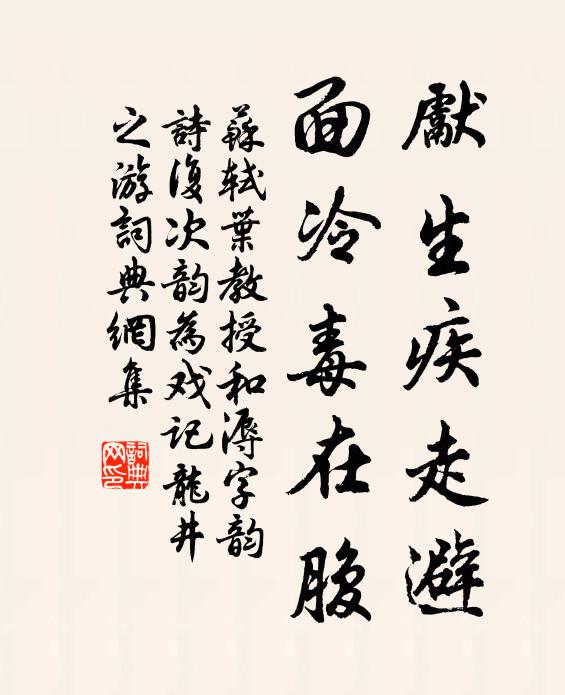 獻生疾走避
面冷毒在腹
蘇軾葉教授和溽字韻
詩復次韻為戏記龍井
之游詞典網集
詞典网印